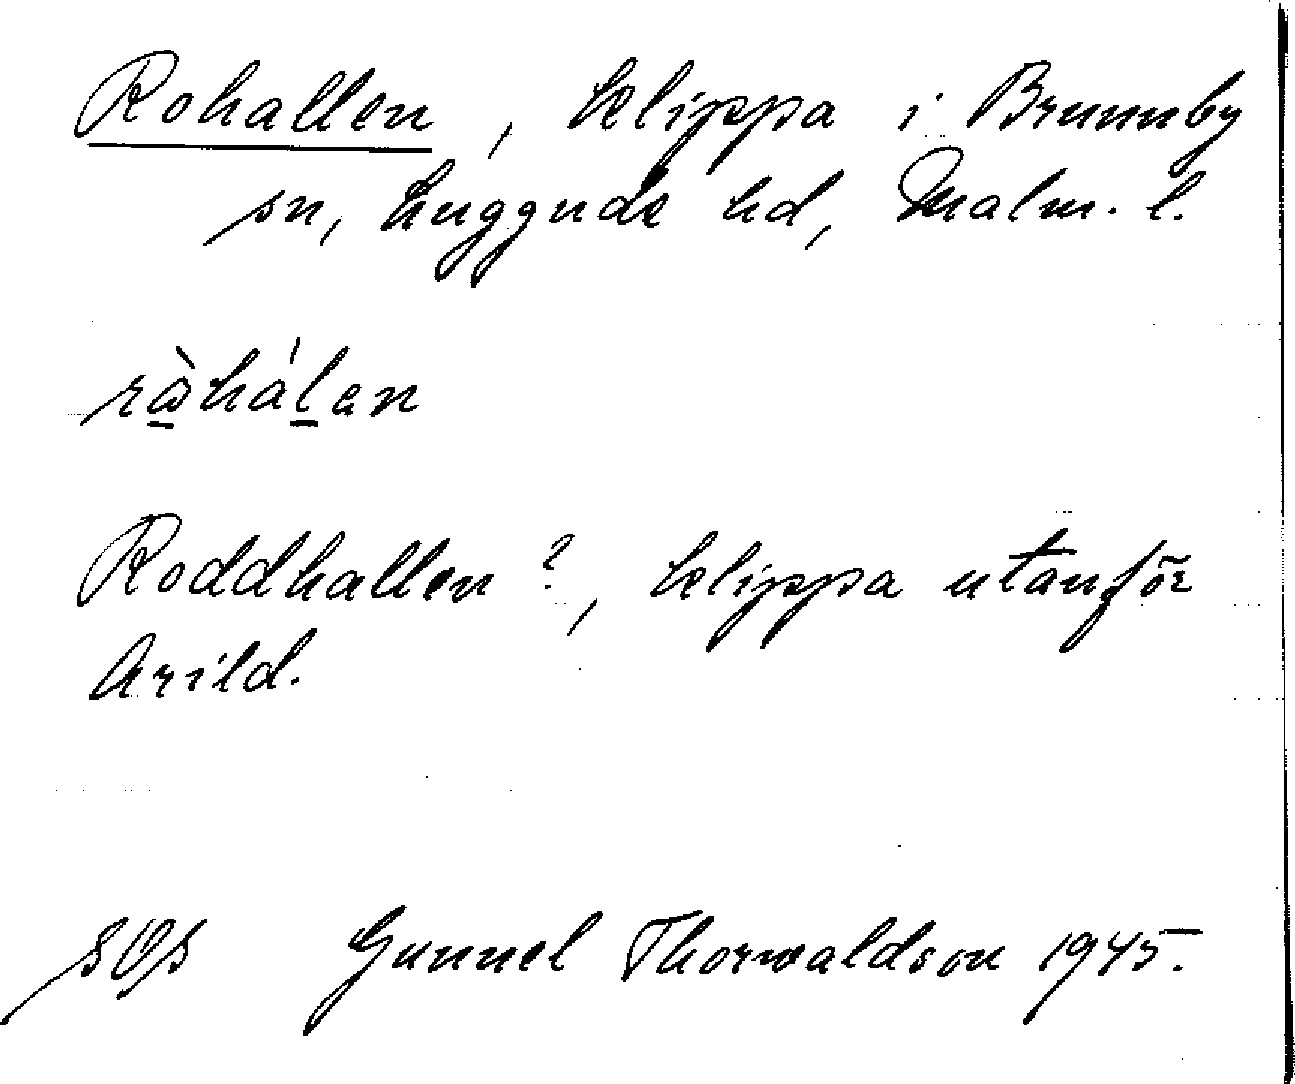 Rohallen, klippa i Brunnby
sn, Luggude hd, Malm. l.
Roddhallen?, klippa utanför
Arild.
Gunnel Thorwaldson 1945.